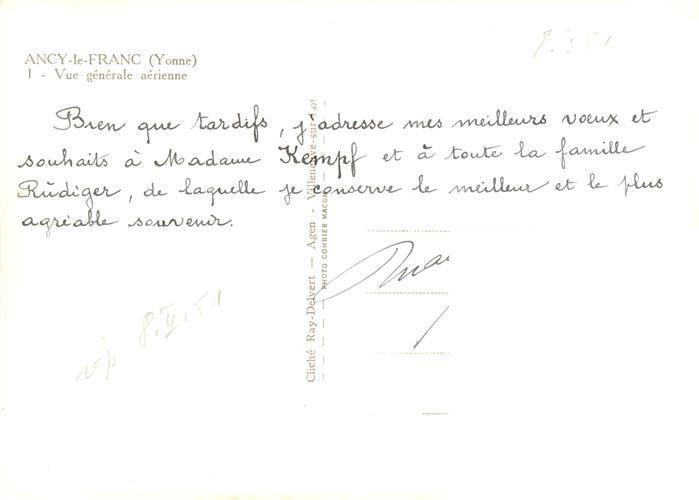 ANCY-le-FRANC (Yonne)
1 - Vue générale aérienne
Bien que tardifs, j'adresse mes meilleurs vœux et
souhaits à Madame Kempf et à toute la famille
Rüdiger, de laquelle je conserve le meilleur et le plus
agréable souvenir.
Cliché Ray-Delvert — Agen - Villeneuve-sur-Lot
PHOTO COMBIER MACON
rép 8.II.51